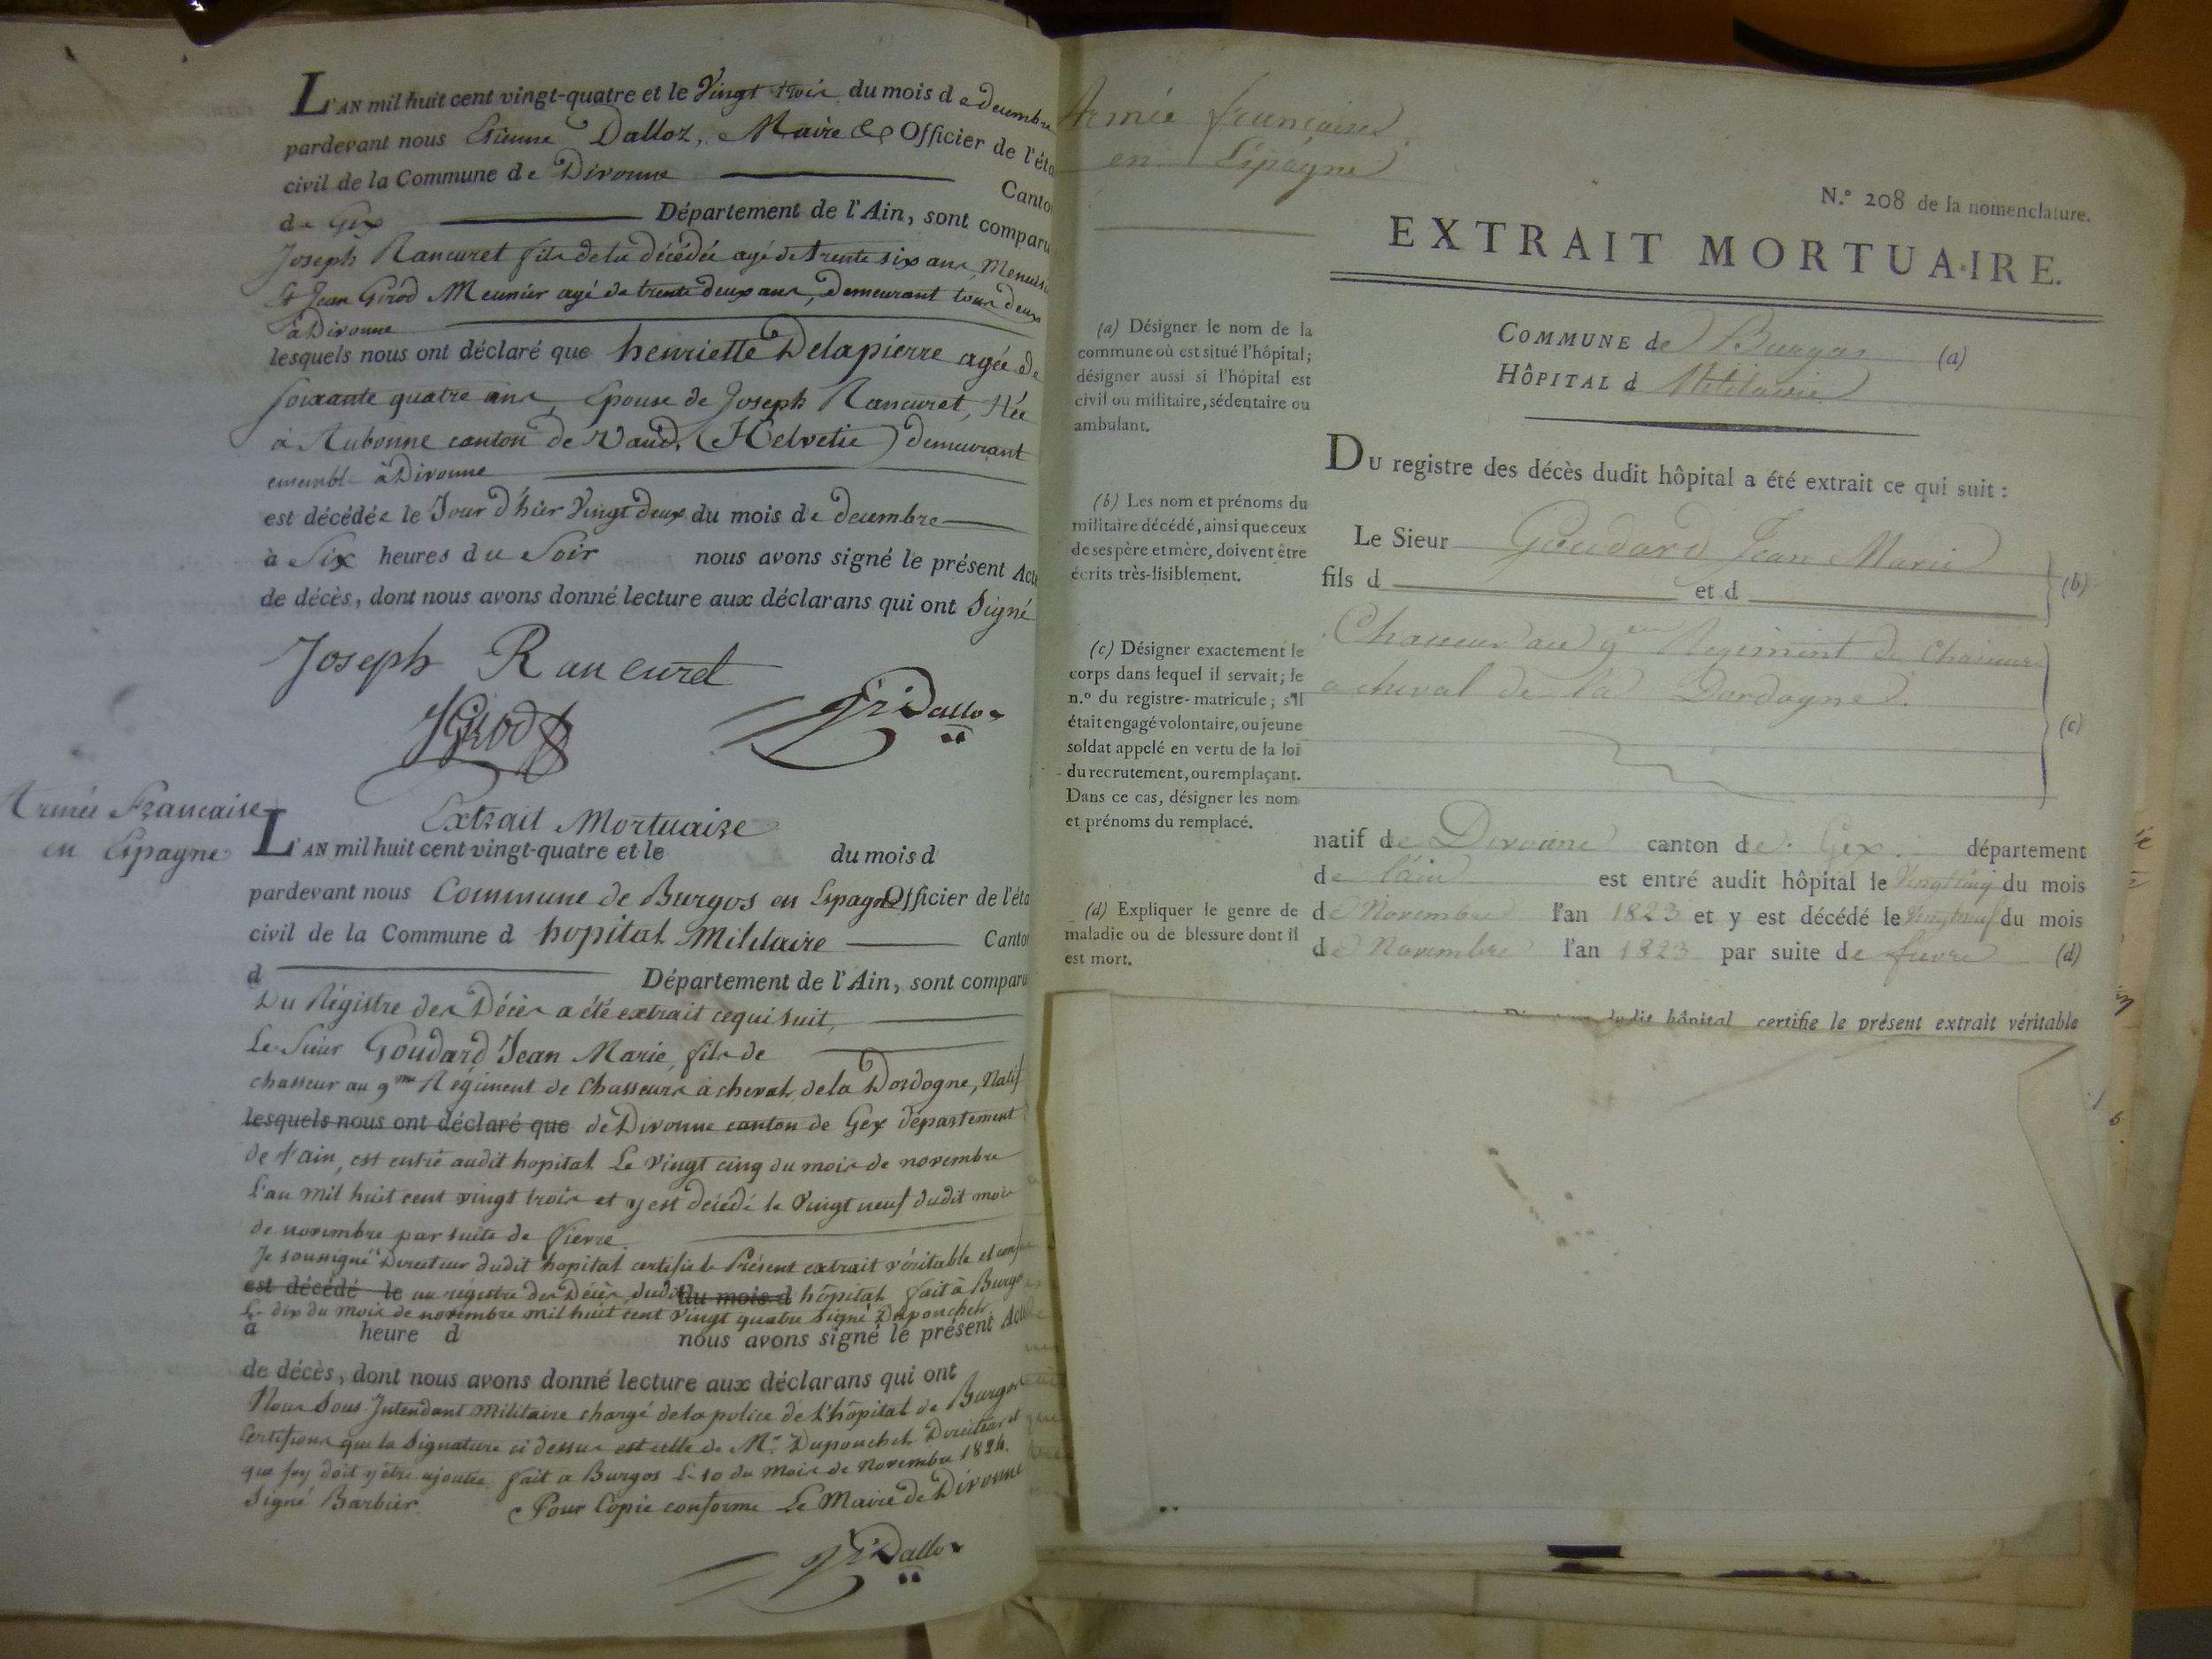 L'AN mil huit cent vingt-quatre et le Vingt trois du mois de decembre
pardevant nous Etienne Dalloz, Maire & Officier de l'éta
civil de la Commune de Divonne Canto
de Gex Département de l'Ain, sont comparu
Joseph Rancuret fils de la décédée agé de trente six ans, Menuisi
Et Jean Girod Meunier agé de trente deux ans, Demeurant tous deux
à Divonne
lesquels nous ont déclaré que henriette Delapierre agée de
soixante quatre ans, Epouse de Joseph Rancuret, Née
à Aubonne canton de Vaud, (Helvetie) demeurant
ensemble à Divonne
est décédée le Jour d'hier Vingt deux du mois de decembre
à Six heures du Soir nous avons signé le présent Acte
de décès, dont nous avons donné lecture aux déclarans qui ont Signé
Joseph Rancuret
JGirod
Dalloz
Armée Francaise
en Espagne
Extrait Mortuaire
L'AN mil huit cent vingt-quatre et le du mois d
pardevant nous Commune de Burgos en Espagne Officier de l'éta
civil de la Commune d hopital Militaire Canto
d Département de l'Ain, sont comparu
Du Régistre des Décès a été extrait ce qui suit,
Le Sieur Goudard Jean Marie, fils de
chasseur au 9me Régiment de Chasseurs à cheval de la Dordogne, Natif
lesquels nous ont déclaré que de Divonne canton de Gex département
de l'ain, est entré audit hopital Le vingt cinq du mois de novembre
l'an mil huit cent vingt trois et y est décédé le Vingt neuf dudit mois
de novembre par suite de fievre
Je soussigné Directeur dudit hopital certifie le Présent extrait véritable et conf
est décédé le au régistre des Décès dudit du mois d hôpital fait à Burgo
Le dix du mois de novembre mil huit cent vingt quatre signé Duponchel
à heure d nous avons signé le présent Acte
de décès, dont nous avons donné lecture aux déclarans qui ont
Nous Sous-Intendant militaire chargé de la police de l'hôpital de Burgos
Certifions que la Signature ci dessus est celle de Mr Duponchel Directeur et
que foy doit y être ajoutée fait a Burgos Le 10 du Mois de Novembre 1824.
Signé Barbier. Pour Copie conforme Le Maire de Divonne
Dalloz
Armée francaise
en Espagne
N.º 208 de la nomenclature.
EXTRAIT MORTUAIRE.
COMMUNE de Burgos (a)
HÔPITAL d Militaire
(a) Désigner le nom de la
commune où est situé l'hôpital;
désigner aussi si l'hôpital est
civil ou militaire, sédentaire ou
ambulant.
DU registre des décès dudit hôpital a été extrait ce qui suit :
(b) Les nom et prénoms du
militaire décédé, ainsi que ceux
de ses père et mère, doivent être
écrits très-lisiblement.
Le Sieur Goudard Jean Marie
fils d et d (b)
(c) Désigner exactement le
corps dans lequel il servait; le
n.º du registre-matricule; s'il
était engagé volontaire, ou jeune
soldat appelé en vertu de la loi
du recrutement, ou remplaçant.
Dans ce cas, désigner les nom
et prénoms du remplacé.
Chasseur au 9eme Regiment de Chasseurs
a cheval de la Dordogne.
(c)
natif de Divonne canton de Gex département
de l'ain est entré audit hôpital le Vingt cinq du mois
de Novembre l'an 1823 et y est décédé le Vingt neuf du mois
de Novembre l'an 1823 par suite de fievre (d)
(d) Expliquer le genre de
maladie ou de blessure dont il
est mort.
dudit hôpital certifie le présent extrait véritable